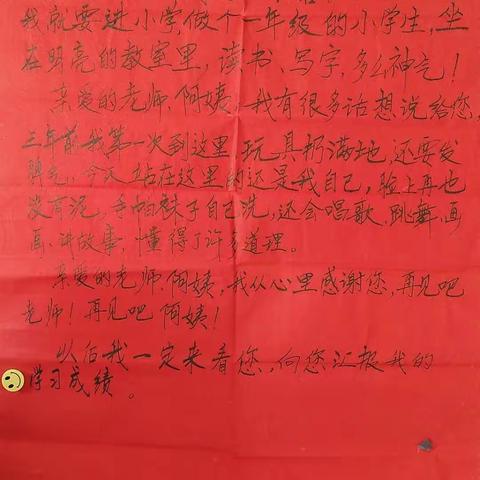 我就要进小学,做个一年级的小学生,坐
在明亮的教室里,读书、写字,多么神气!
亲爱的老师、阿姨,我有很多话想说给您,
三年前我第一次到这里,玩具扔满地,还要发
脾气,今天站在这里的还是我自己,脸上再也
没有泥,手帕袜子自己洗,还会唱歌、跳舞、画
画、讲故事,懂得了许多道理。
亲爱的老师、阿姨,我从心里感谢您,再见吧
老师!再见吧 阿姨!
以后我一定来看您,向您汇报我的
学习成绩。